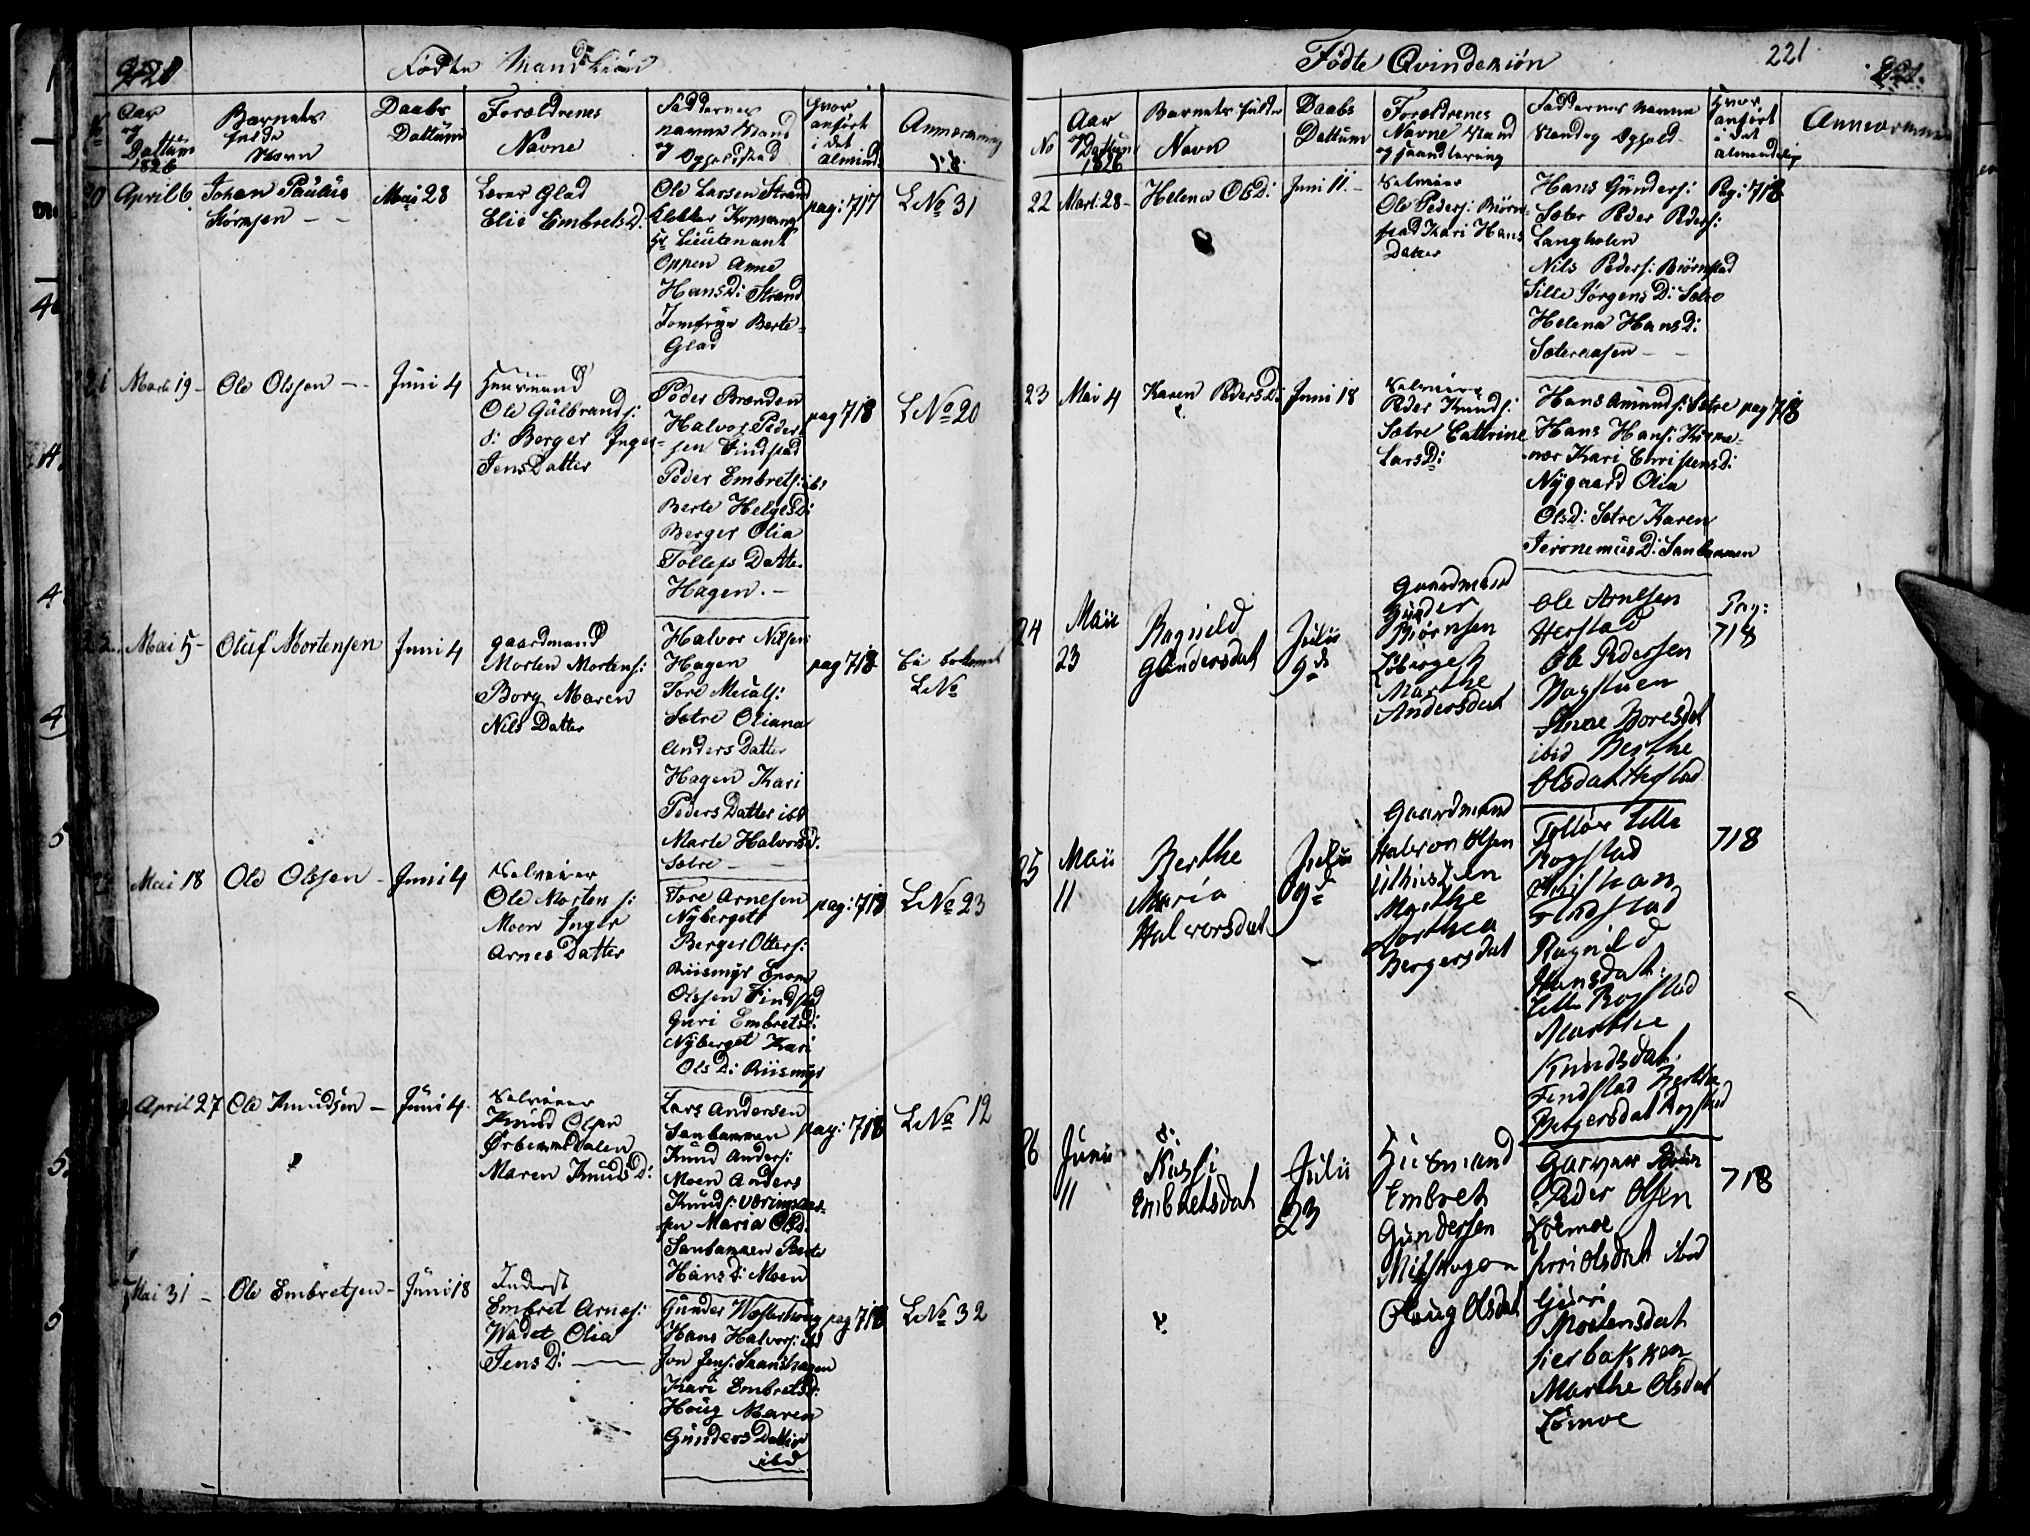 220
Fødte Mandkiøn
No
Aar og Dattum 1826
Barnets fulde Navn
Daabs Dattum
Forældrenes Navne
Faddernes navne Stand og Opholdsted
hvor anført i det Almind:
Anmærkning
20 April 6. Johan Paulus
Mai 28
Elie Embrets D.
Ole Larsen Strand
Klokker Koppang
Hr Lieutenant
Oppen Anne
Hans D: Strand
Jomfrue Berte
Glad
pag: 717
L No 31
21 Marti 19 - Ole Olssen - -
Juni 4
Huusmand
Ole Gulbrands:
s: Berger Inger
Jens Datter
Peder Brænden
Halvor Peder
sen Findstad
Peder Embrets: ibd
Berte Helges D:
Berger Olia
Tollefs Datter
Hagen. -
pag 718
L No 20
22. Mai 5 - Oluf Mortensen
Juni 4
gaardmand
Morten Mortens:
Borg Maren
Nils Datter
Halvor Nilsen
Hagen
Tore
Sætre Oliana
Anders Datter
Hagen Kari
Peders Datter ibd
Marte Halvorsd.
Sætre -
pag 718
L No
23 Mai 18 Ole Olssen -
Juni 4
Selveier
Ole Mortens:
Moen Inger
Arnes Datter
Tore Arnesen
Nyberget
Berger Otters:
Riismyr
Olssen Findstad
Guri Embretsd:
Nyberget Kari
Ols D: Riismyr
pag: 718
L No 23
April 27 Ole Knudsen -
Juni 4.
Selveier
Knud Olsen
Maren Knuds D:
Lars Andersen
Sankammen
Knud Anders:
Moen Anders
Knuds:
sen Maria Olsd.
Sanbammen Berte
Hans D: Moen
pag: 718
L No 12
Mai 31 - Ole Embretsen -
Juni 18
Inderst
Embret Arnes:
Wadet Olia
Jens D:
Gunder Westerhoug
Hans Halvors: ibd
Jon Jens:
Kari Embretsd:
Houg Maren
Gunders Datter
ibd
pag 718
L No 32
221
Fødte Qvindekiøn
221.
No
Aar og Dattum 1826
Barnets fulde Navn
Daabs Dattum
Forældrenes Navne Stand og Haandtering
Faddernes Navne Stand og Ophold
hvor anført i det Almindelige
Anmærkning
22 Mart: 28 - Helena Ols D:
Juni 11. -
Selveier
Ole Peders: Biørn
stad Kari Hans
Datter
Hans Gunders:
Sæter Peder Peders:
Langholen
Nils Peders: Biørnstad
Sille Jørgens D: Sætre
Helena Hans D:
Sæteraasen - -
Pag: 718
23 Mai 4 Karen Peders D:
Juni 18
Selveier
Peder Knuds:
Sætre Cathrine
Lars D:
Hans Amunds: Sætre
Hans Hans:
Kari Christens D:
Nygaard Olia
Ols D: Sætre Karen
Jeronemus D: Sanbammen
pag 718
24 Maii 23
Ragnild
Gundersdat
Julii 9de
Gaardmand
Gunder
Biørnsen
Marthe
Andersdat
Ole Arnesen
Hestad
Ole Pedersen
ibid Berthe
Olsdat Hestad
Pag:
718
25 Maii 11
Berthe
Maria
Halvorsdat
Julii 9de
Gaardmand
Halvor Olsen
Marthe
Dorthea
Bergersdat
Lille
Rogstad
Christian
Findstad
Ragnild
Hansdat:
Lille Rogstad
Marthe
Knudsdat:
Findstad Berthe
Bergersdat Rogstad
718
26 Junii 11
Embretsdat
Julii 23
Huusmand
Embret
Gundersen
Olsdat
Peder Olsen
Lømoe
Kari Olsdat ibid
Guri
Mortensdat
Marthe Olsdat
Lømoe
718